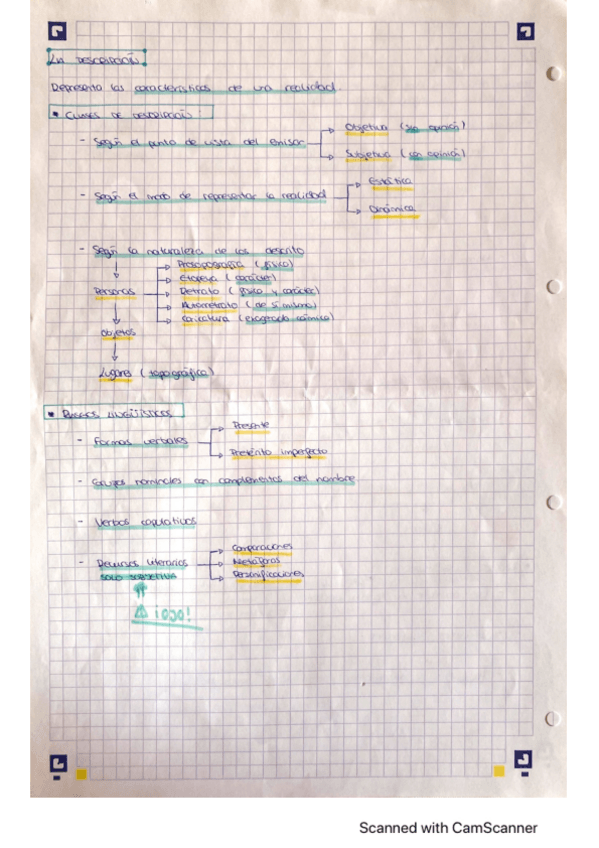 LA DESCRIPCIÓN
Representa las características de una realidad.
• CLASES DE DESCRIPCIÓN:
- Según el punto de vista del emisor
Objetiva (sin opinión)
Subjetiva (con opinión)
- Según el modo de representar la realidad
Estática
Dinámica
- Según la naturaleza de los descrito
Personas
Prosopografía (físico)
Etopeya (carácter)
Retrato (físico y carácter)
Autorretrato (de sí mismo)
Caricatura (exagerado cómico)
Objetos
Lugares (topográfica)
• RASGOS LINGÜÍSTICOS
- Formas verbales
Presente
Pretérito imperfecto
- Grupos nominales con complementos del nombre
- Verbos copulativos
- Recursos literarios
SOLO SUBJETIVA
Comparaciones
Metáforas
Personificaciones
¡OJO!
Scanned with CamScanner